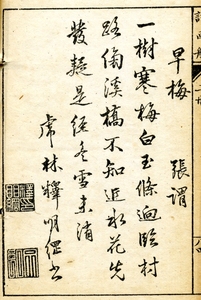 早梅 張謂
一樹寒梅白玉條迥臨村
路傍溪橋不知近水花先
發疑是經冬雪未消
虎林釋明